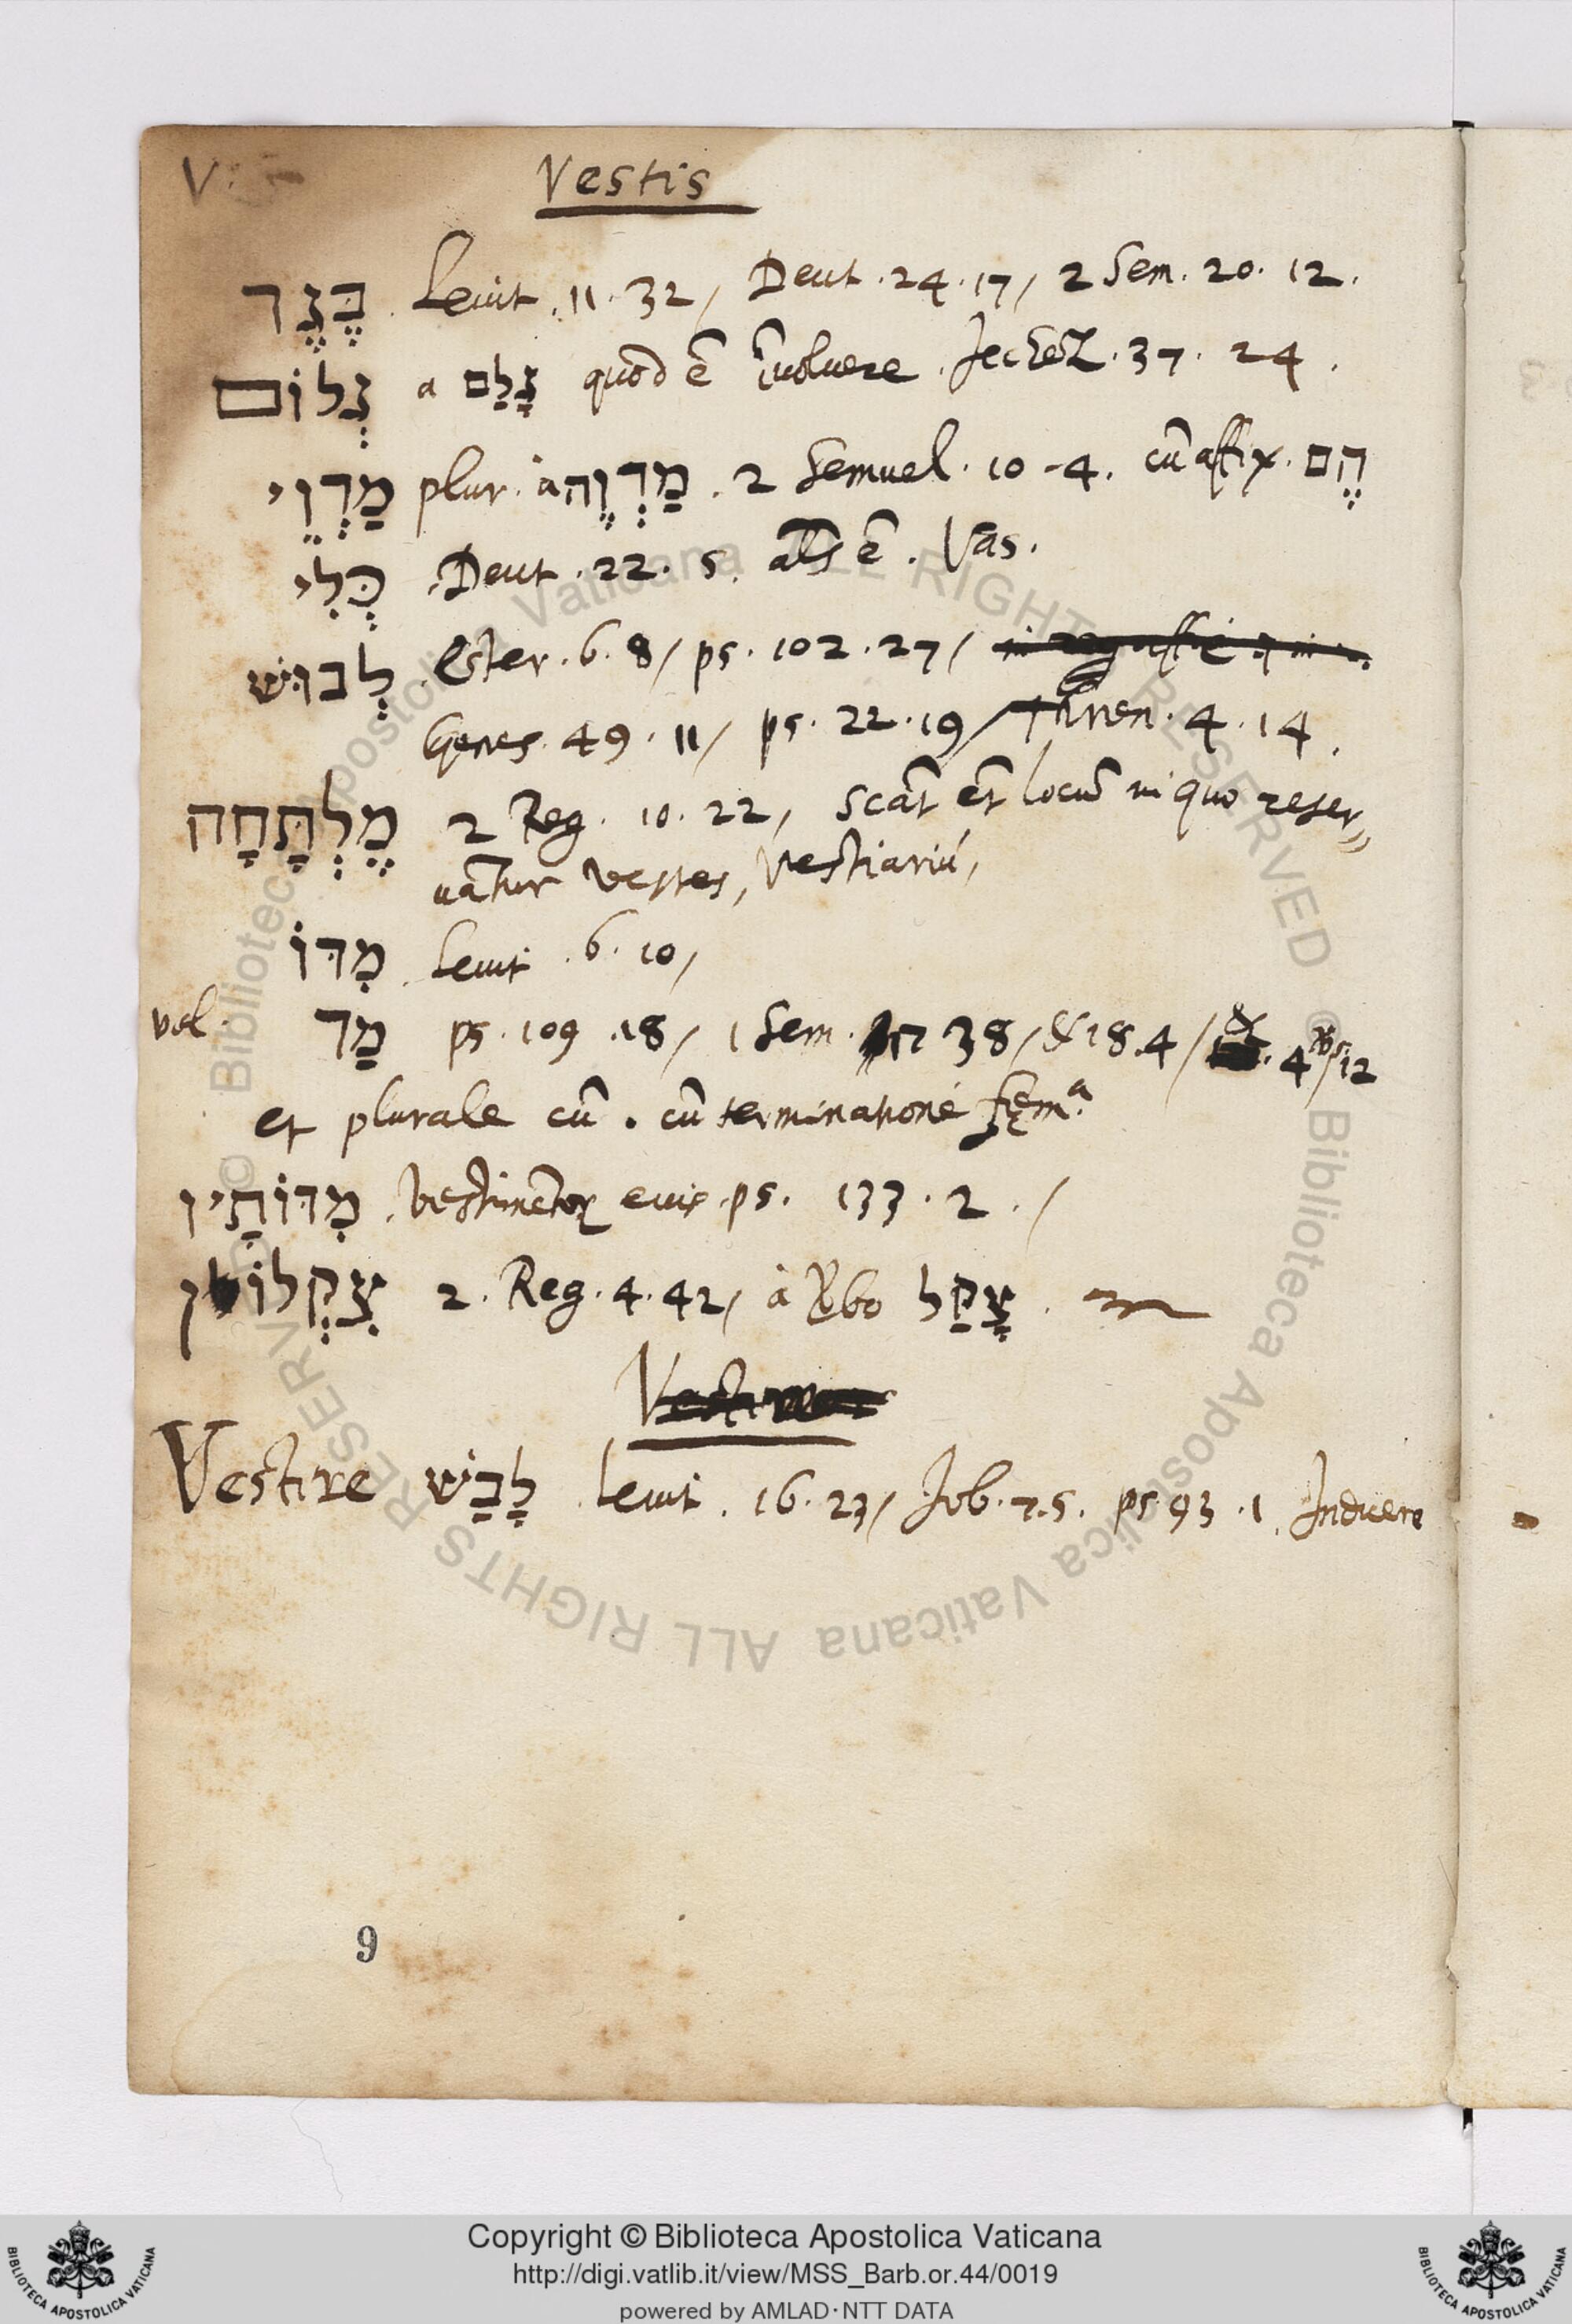 Vestis
בֶּגֶד . Leuit . 11 . 32 / Deut . 24 . 17 / 2 Sem . 20 . 12 .
גְלוֹם a גָלַם quod ē īuoluere . Jechez . 37 . 24 .
מַדְוֵי plur . à מַדְוֶה . 2 Semuel . 10 - 4 . cū affix . הֶם
כְּלִי . Deut . 22 . 5 . als ē . Vas .
לְבוּשׁ . Ester . 6 . 8 / ps . 102 . 27 /
Genes . 49 . 11 / ps . 22 . 19 / Thren . 4 . 14 .
מֶלְתָּחָה 2 Reg . 10 . 22 , scāt ēt locū in quo reser⸗
uātur vestes , Vestiariū ,
מִדּוֹ . Leuit . 6 . 10 /
vel . מַד ps . 109 . 18 / 1 Sem . 17 38 / & 18 . 4 / & . 4 12
et plurale cū . cū terminationē fęm.ª
מִדּוֹתָיו . Vestimētoꝝ eius . ps . 133 . 2 . /
צִקְלוֹן 2 . Reg . 4 . 42 / à Vbo צָקַל .
Vestire לָבַשׁ . Leuit . 16 . 23 / Job . 7 . 5 . ps 93 . 1 . Induere
9
Copyright © Biblioteca Apostolica Vaticana
http://digi.vatlib.it/view/MSS_Barb.or.44/0019
powered by AMLAD·NTT DATA
BIBLIOTECA APOSTOLICA VATICANA
BIBLIOTECA APOSTOLICA VATICANA
© Biblioteca Apostolica Vaticana ALL RIGHTS RESERVED
© Biblioteca Apostolica Vaticana ALL RIGHTS RESERVED